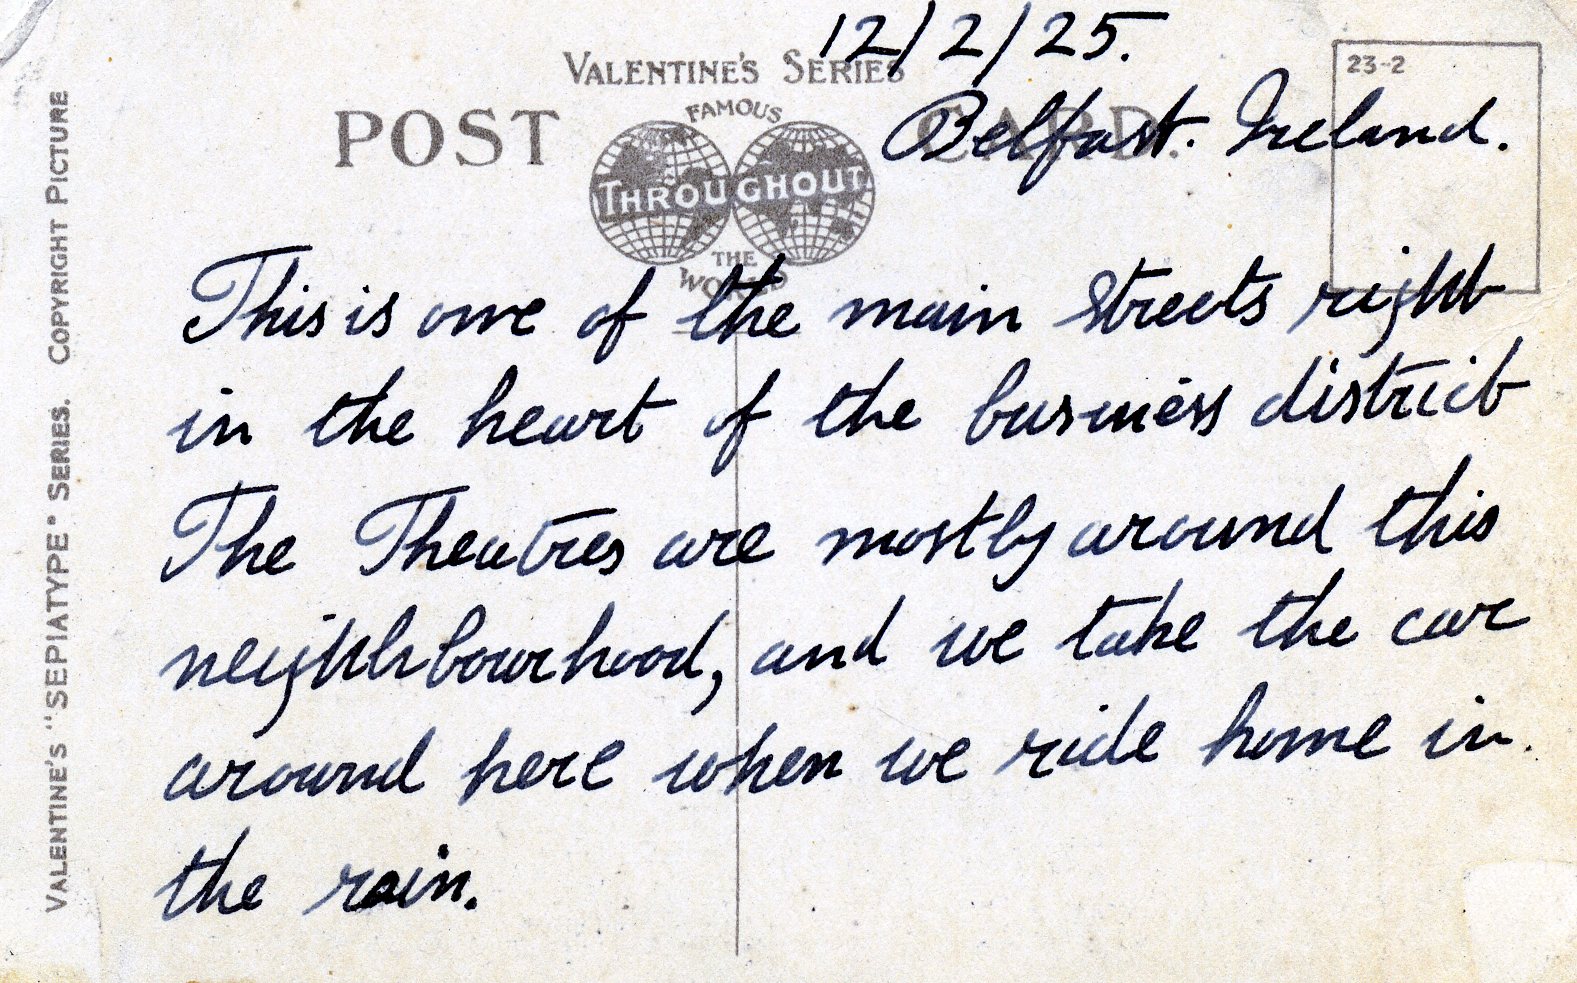 12/2/25.
VALENTINE'S SERIES
23-2
POST CARD.
FAMOUS
THROUGHOUT
THE
WORLD
Belfast. Ireland.
This is one of the main streets right
in the heart of the business district
The Theatres are mostly around this
neighbourhood, and we take the car
around here when we ride home in
the rain.
VALENTINE'S "SEPIATYPE" SERIES. COPYRIGHT PICTURE